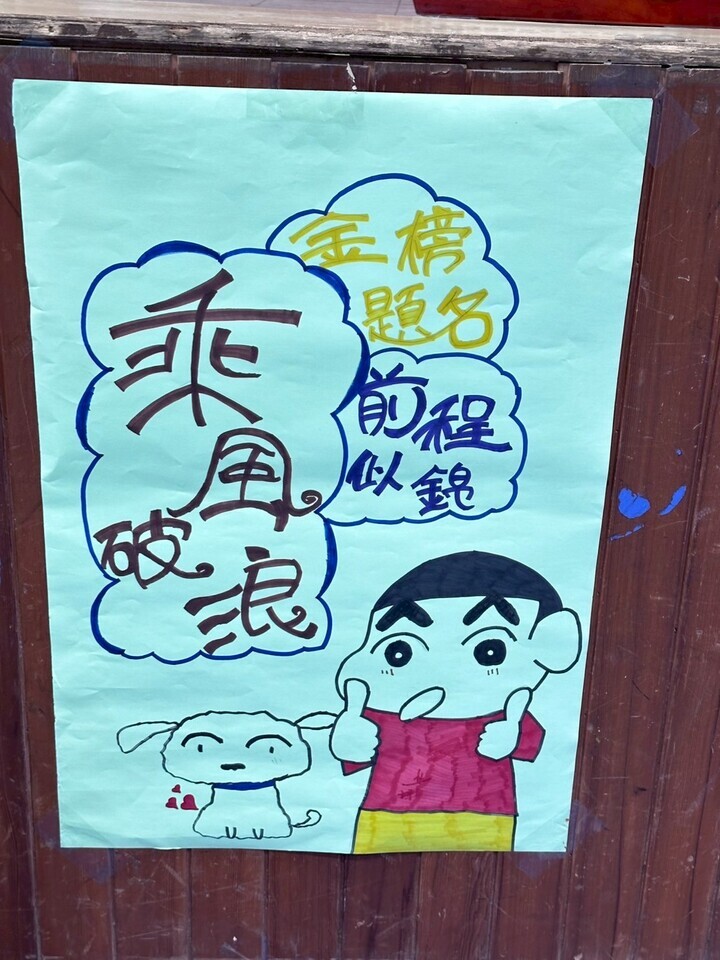 金榜
題名
乘
風
破浪
前程
似錦